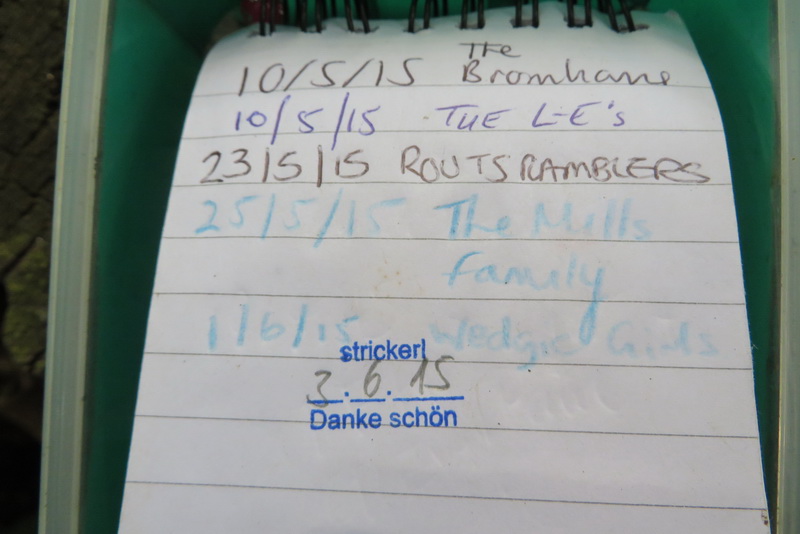 The
10/5/15 Bromhams
10/5/15 THE L-E's
23/5/15 ROUTSRAMBLERS
25/5/15 The Mills
Family
1/6/15 Wedgie Girls
strickerl
3.6.15
Danke schön